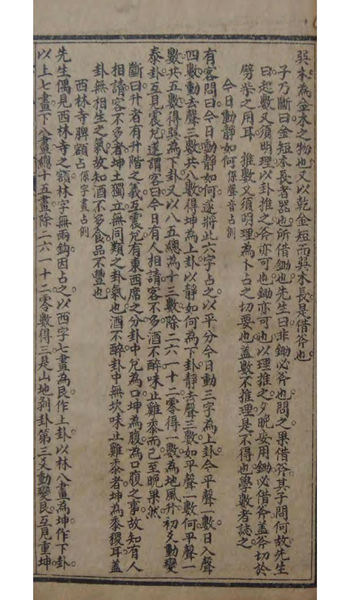 巽木為金木之物也又以乾金短而巽木長是借斧也
子乃斷曰金短木長者器也所借鋤也先生曰非鋤必斧也問之果借斧其子問何故先生
曰起數又須明理以卦推之斧亦可也鋤亦可也以理推之夕晚安用鋤必借斧蓋斧切於
劈柴之用耳推數又須明理為卜占之切要也蓋數不推理是不得也學數者誌之
今日動靜如何係聲音占例
有客問曰今日動靜如何遂將此六字占之以平分今日動三字為上卦今平聲一數日入聲
四數動去聲三數共八數得坤為上卦以靜如何為下卦靜去聲三數如平聲一數何平聲一
數共五數得巽為下卦又以八五總為十三數除二六一十二零得一數為地風升初爻動變
泰卦互見震兌遂謂客曰今日有人相請客不多酒不醉味止雞黍而已至晚果然
斷曰升者有升階之義互震兌有東西席之分卦中兌為口坤為腹為口腹之事故知有人
相請客不多者坤土獨立無同類之卦氣也酒不醉卦中無坎味止雞黍者坤為黍稷耳蓋
卦無相生之氣故知酒不多食品不豐也
西林寺牌額占係字畫占例
先生偶見西林寺之額林字無兩鉤因占之以西字七畫為艮作上卦以林八畫為坤作下卦
以上七畫下八畫總十五畫除二六一十二零數得三是山地剝卦第三爻動變艮互見重坤